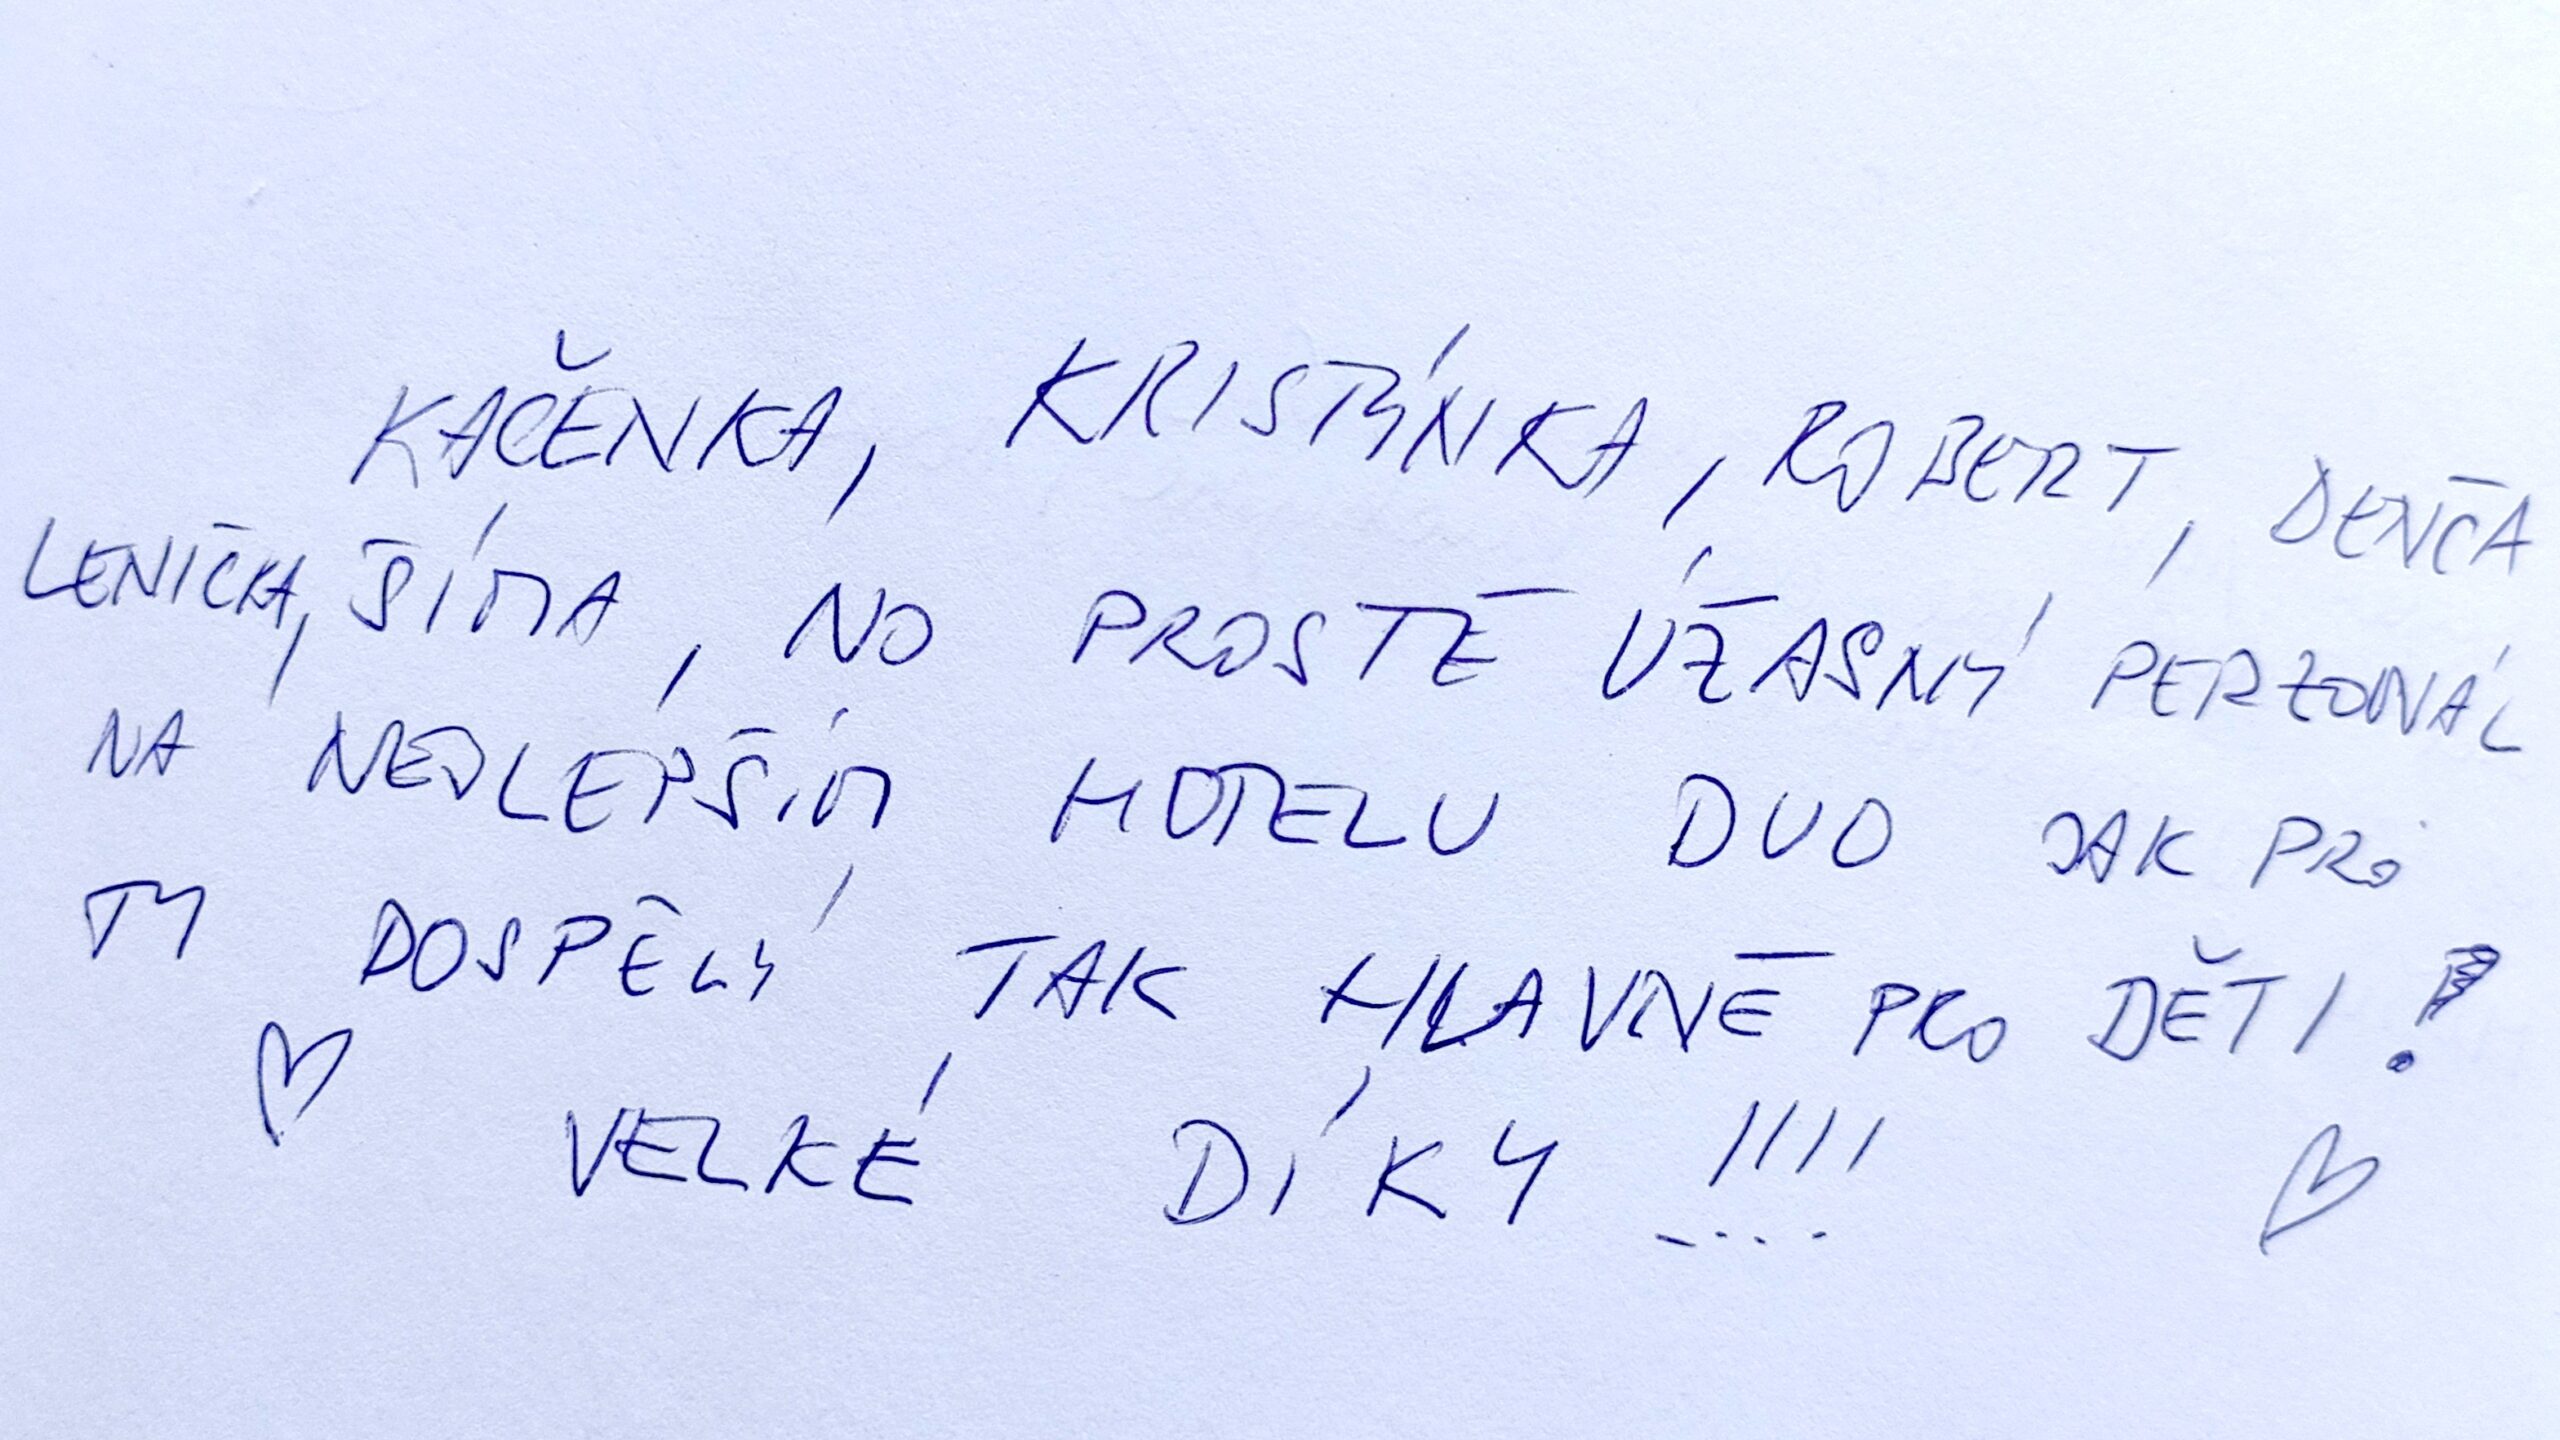 KAČENKA, KRISTÝNKA, ROBERT, DENČA
LENIČKA, ŠÍMA, NO PROSTĚ ÚŽASNÝ PERZONÁL
NA NEJLEPŠÍM HOTELU DUO JAK PRO
TY DOSPĚLÝ TAK HLAVNĚ PRO DĚTI!
♡ VELKÉ DÍKY !!!! ♡